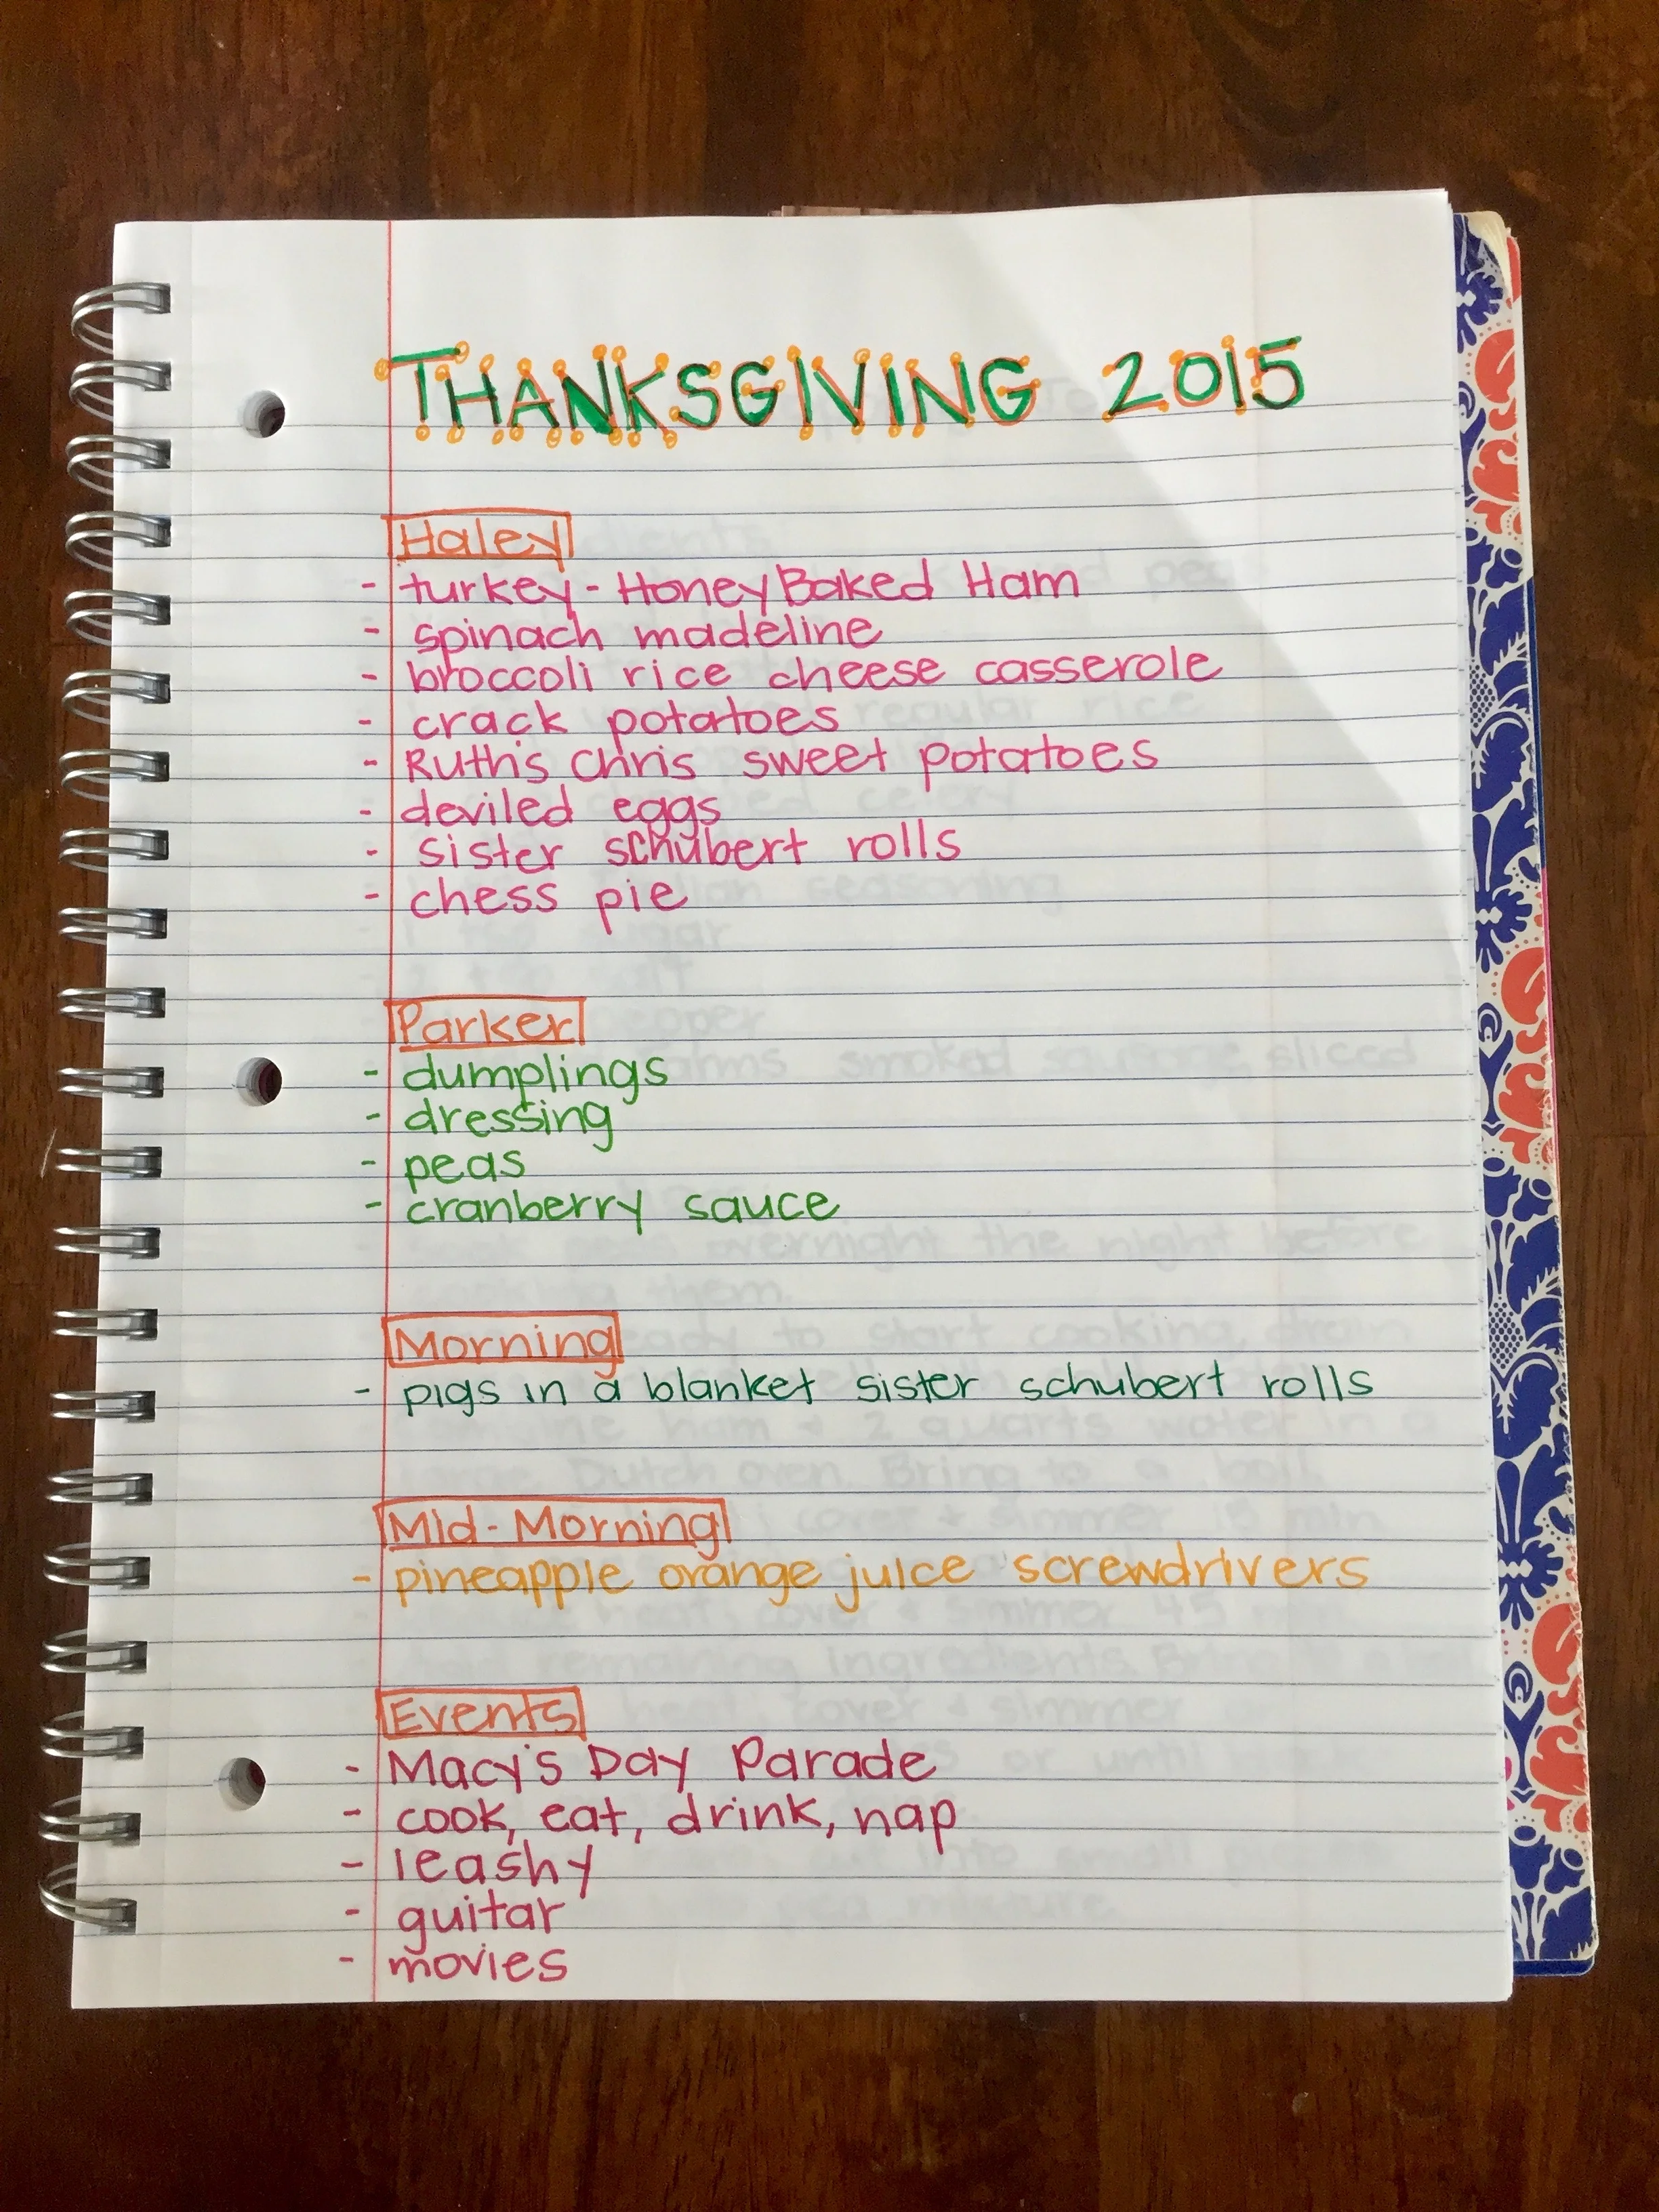 THANKSGIVING 2015
Haley
- turkey - HoneyBaked Ham
- spinach madeline
- broccoli rice cheese casserole
- crack potatoes
- Ruth's Chris sweet potatoes
- deviled eggs
- sister schubert rolls
- chess pie
Parker
- dumplings
- dressing
- peas
- cranberry sauce
Morning
- pigs in a blanket sister schubert rolls
Mid-Morning
- pineapple orange juice screwdrivers
Events
- Macy's Day Parade
- cook, eat, drink, nap
- leashy
- guitar
- movies